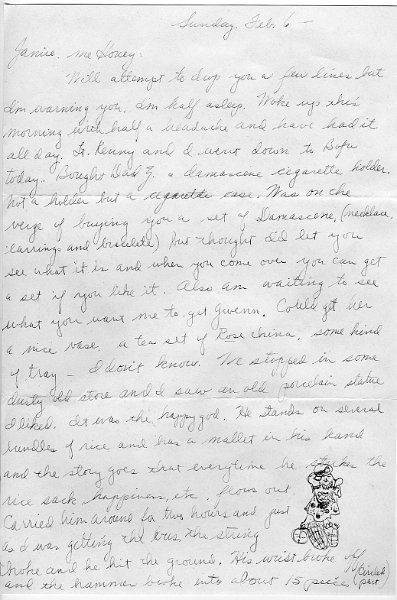 Sunday, Feb. 6 -
Janice, me Honey:
Will attempt to drop you a few lines but
I'm warning you, I'm half asleep. Woke up this
morning with half a headache and have had it
all day. Lt. Kenny and I went down to Bofu
today. Bought Dad Z. a damascene cigarette holder.
Not a holder but a cigarette case. Was on the
verge of buying you a set of Damascene, (necklace,
earrings and bracelete) but thought I'd let you
see what it is and when you come over you can get
a set if you like it. Also am waiting to see
what you want me to get Gwenn. Could get her
a nice vase, a tea set of Rose China, some kind
of tray - I don't know. We stopped in some
dusty old store and I saw an old porcelain statue
I liked. It was the happy god. He stands on several
bundles of rice and has a mallet in his hand
and the story goes that everytime he strikes the
rice sack, happiness, etc. flows out.
Carried him around for two hours and just
as I was getting the bus, the string
broke and he hit the ground. His wrist broke off
and the hammer broke into about 15 pieces. (part)